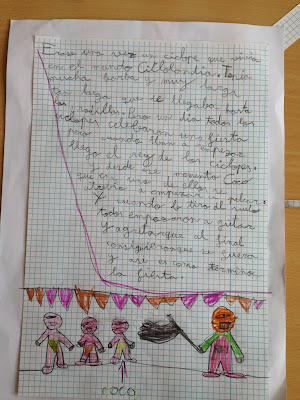 Erase una vez un ciclope que vivia
en el mundo Ciclolandia. Tenia
mucha barba muy larga
tan larga que le llegaba hasta
las rodillas. Pero un dia todos los
ciclopes celebraron una fiesta
pero cuando iban a empezar
llego el rey de los ciclopes.
Y desde ese momento Coco
que era uno ellos se pelearon
y empezo
Y cuando lo tiro al suelo
todos empezaron a gritar
Y aguantar que al final
consiguieron que se fuera
y asi es como termino
la fiesta.
COCO